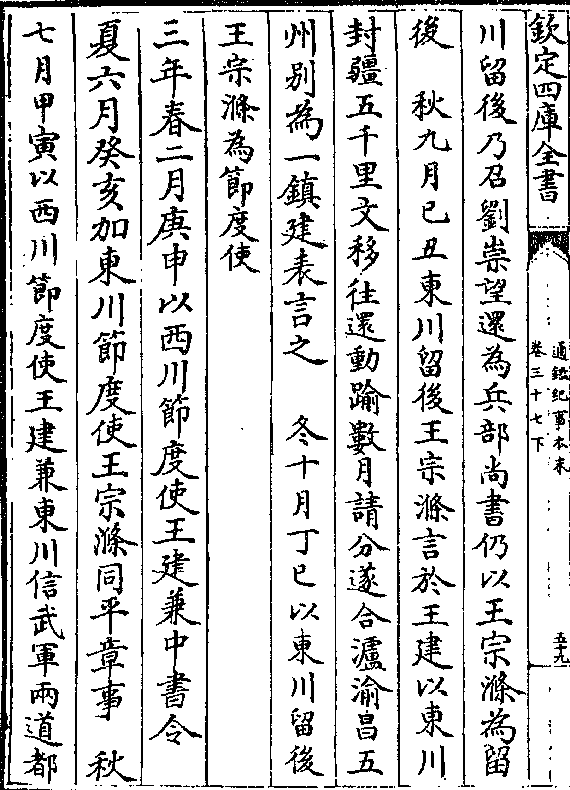 欽定四庫全書
通鑑紀事本末
卷三十七下
五十九
川留後乃召劉崇望還為兵部尚書仍以王宗滌為留
後　秋九月己丑東川留後王宗滌言於王建以東川
封疆五千里文移往還動踰數月請分遂合瀘渝昌五
州別為一鎮建表言之　冬十月丁巳以東川留後
王宗滌為節度使
三年春二月庚申以西川節度使王建兼中書令
夏六月癸亥加東川節度使王宗滌同平章事　秋
七月甲寅以西川節度使王建兼東川信武軍兩道都